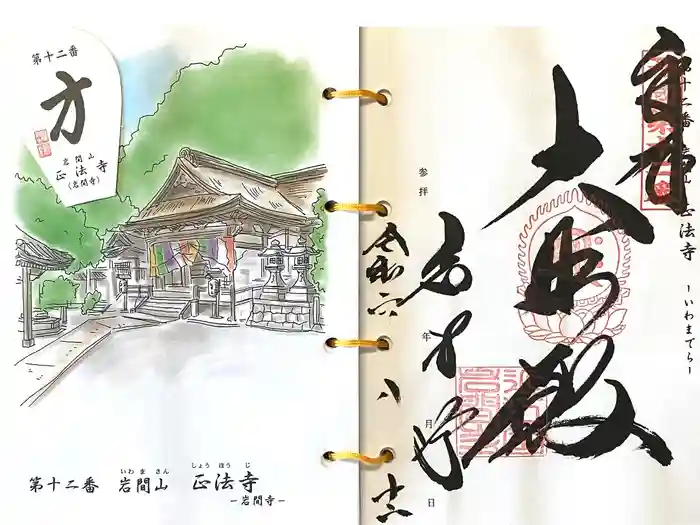 第十二番
方
岩間山
正法寺
(岩間寺)
いわ ま さん しょう ほう じ
第十二番 岩間山 正法寺
-岩間寺-
第十二番 岩間山 正法寺 -いわまでら-
奉拝
大悲殿
岩間寺
参拝 年 月 日
令和六 八 十六